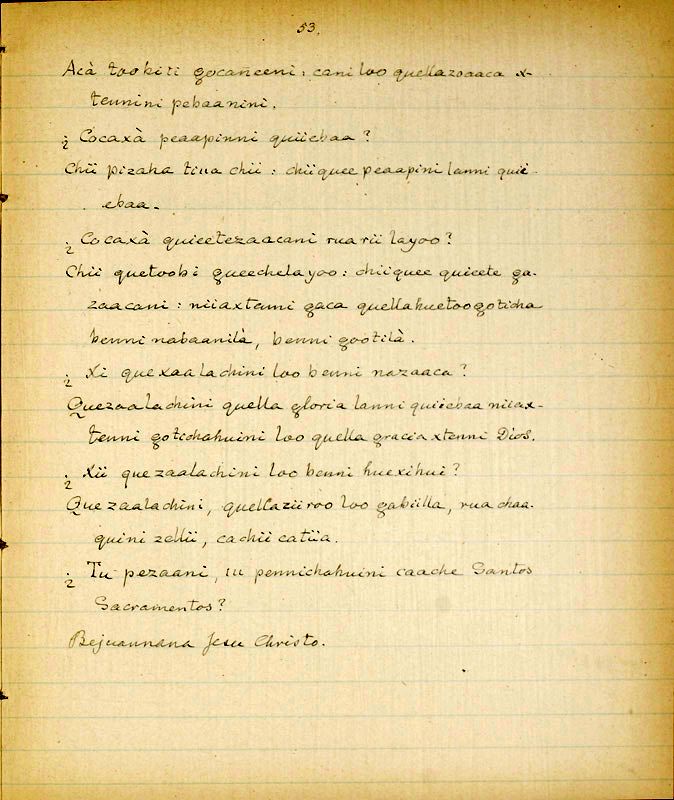 53.
Acà tookiti gocañeeni: cani loo quellazoaaca x-
tennini pebaanini.
¿ Cocaxà peaapinni quiiebaa?
Chii pizaha tiua chii: chiiquee peaapini lanni quii-
ebaa.
¿ Cocaxà quieetezaacani rua rii layoo?
Chii quetoobi gueechelayoo: chiiquee quicete ga-
zaacani: niiaxtenni gaca quellahuetoogoticha
benni nabaanilà, benni gootilà.
¿ Xi quexaalachini loo benni nazaaca?
Quezaalachini quella gloria lanni quiiebaa niiax-
tenni gotichahuini loo quella gracia xtenni Dios.
¿ Xii quezaalachini loo benni huexihui?
Quezaalachini, quellaziiroo loo gabiilla, rua chaa-
quini zellii, cachii catiia.
¿ Tu pezaani, tu pennichahuini caache Santos
Sacramentos?
Bejuannana Jesu Christo.